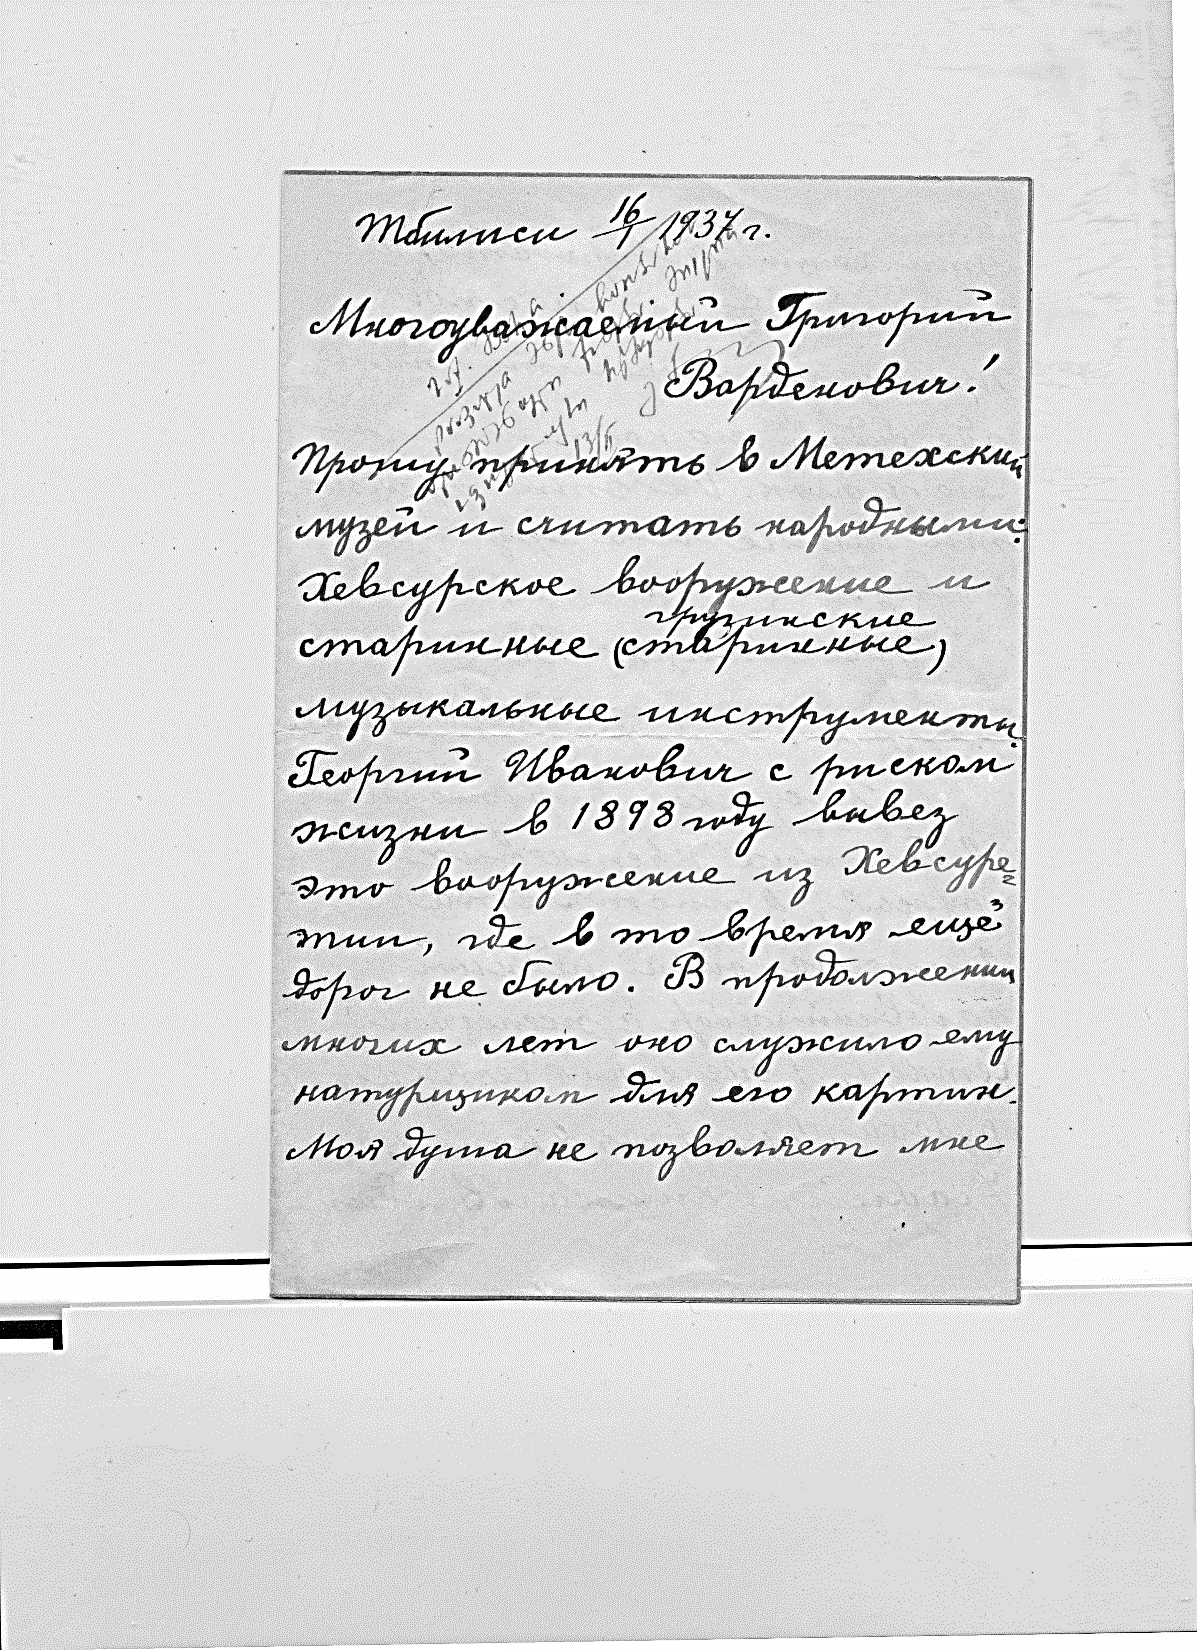 Тбилиси 16/1 1937 г.
Многоуважаемый Григорий
Варденович!
Прошу принять в Метехский
музей и считать народными:
Хевсурское вооружение и
грузинские
старинные (старинные)
музыкальные инструменты.
Георгий Иванович с риском
жизни в 1898 году вывез
это вооружение из Хевсуре=
тии, где в то время ещё
дорог не было. В продолжении
многих лет оно служило ему
натурщиком для его картин.
Моя душа не позволяет мне
13/II